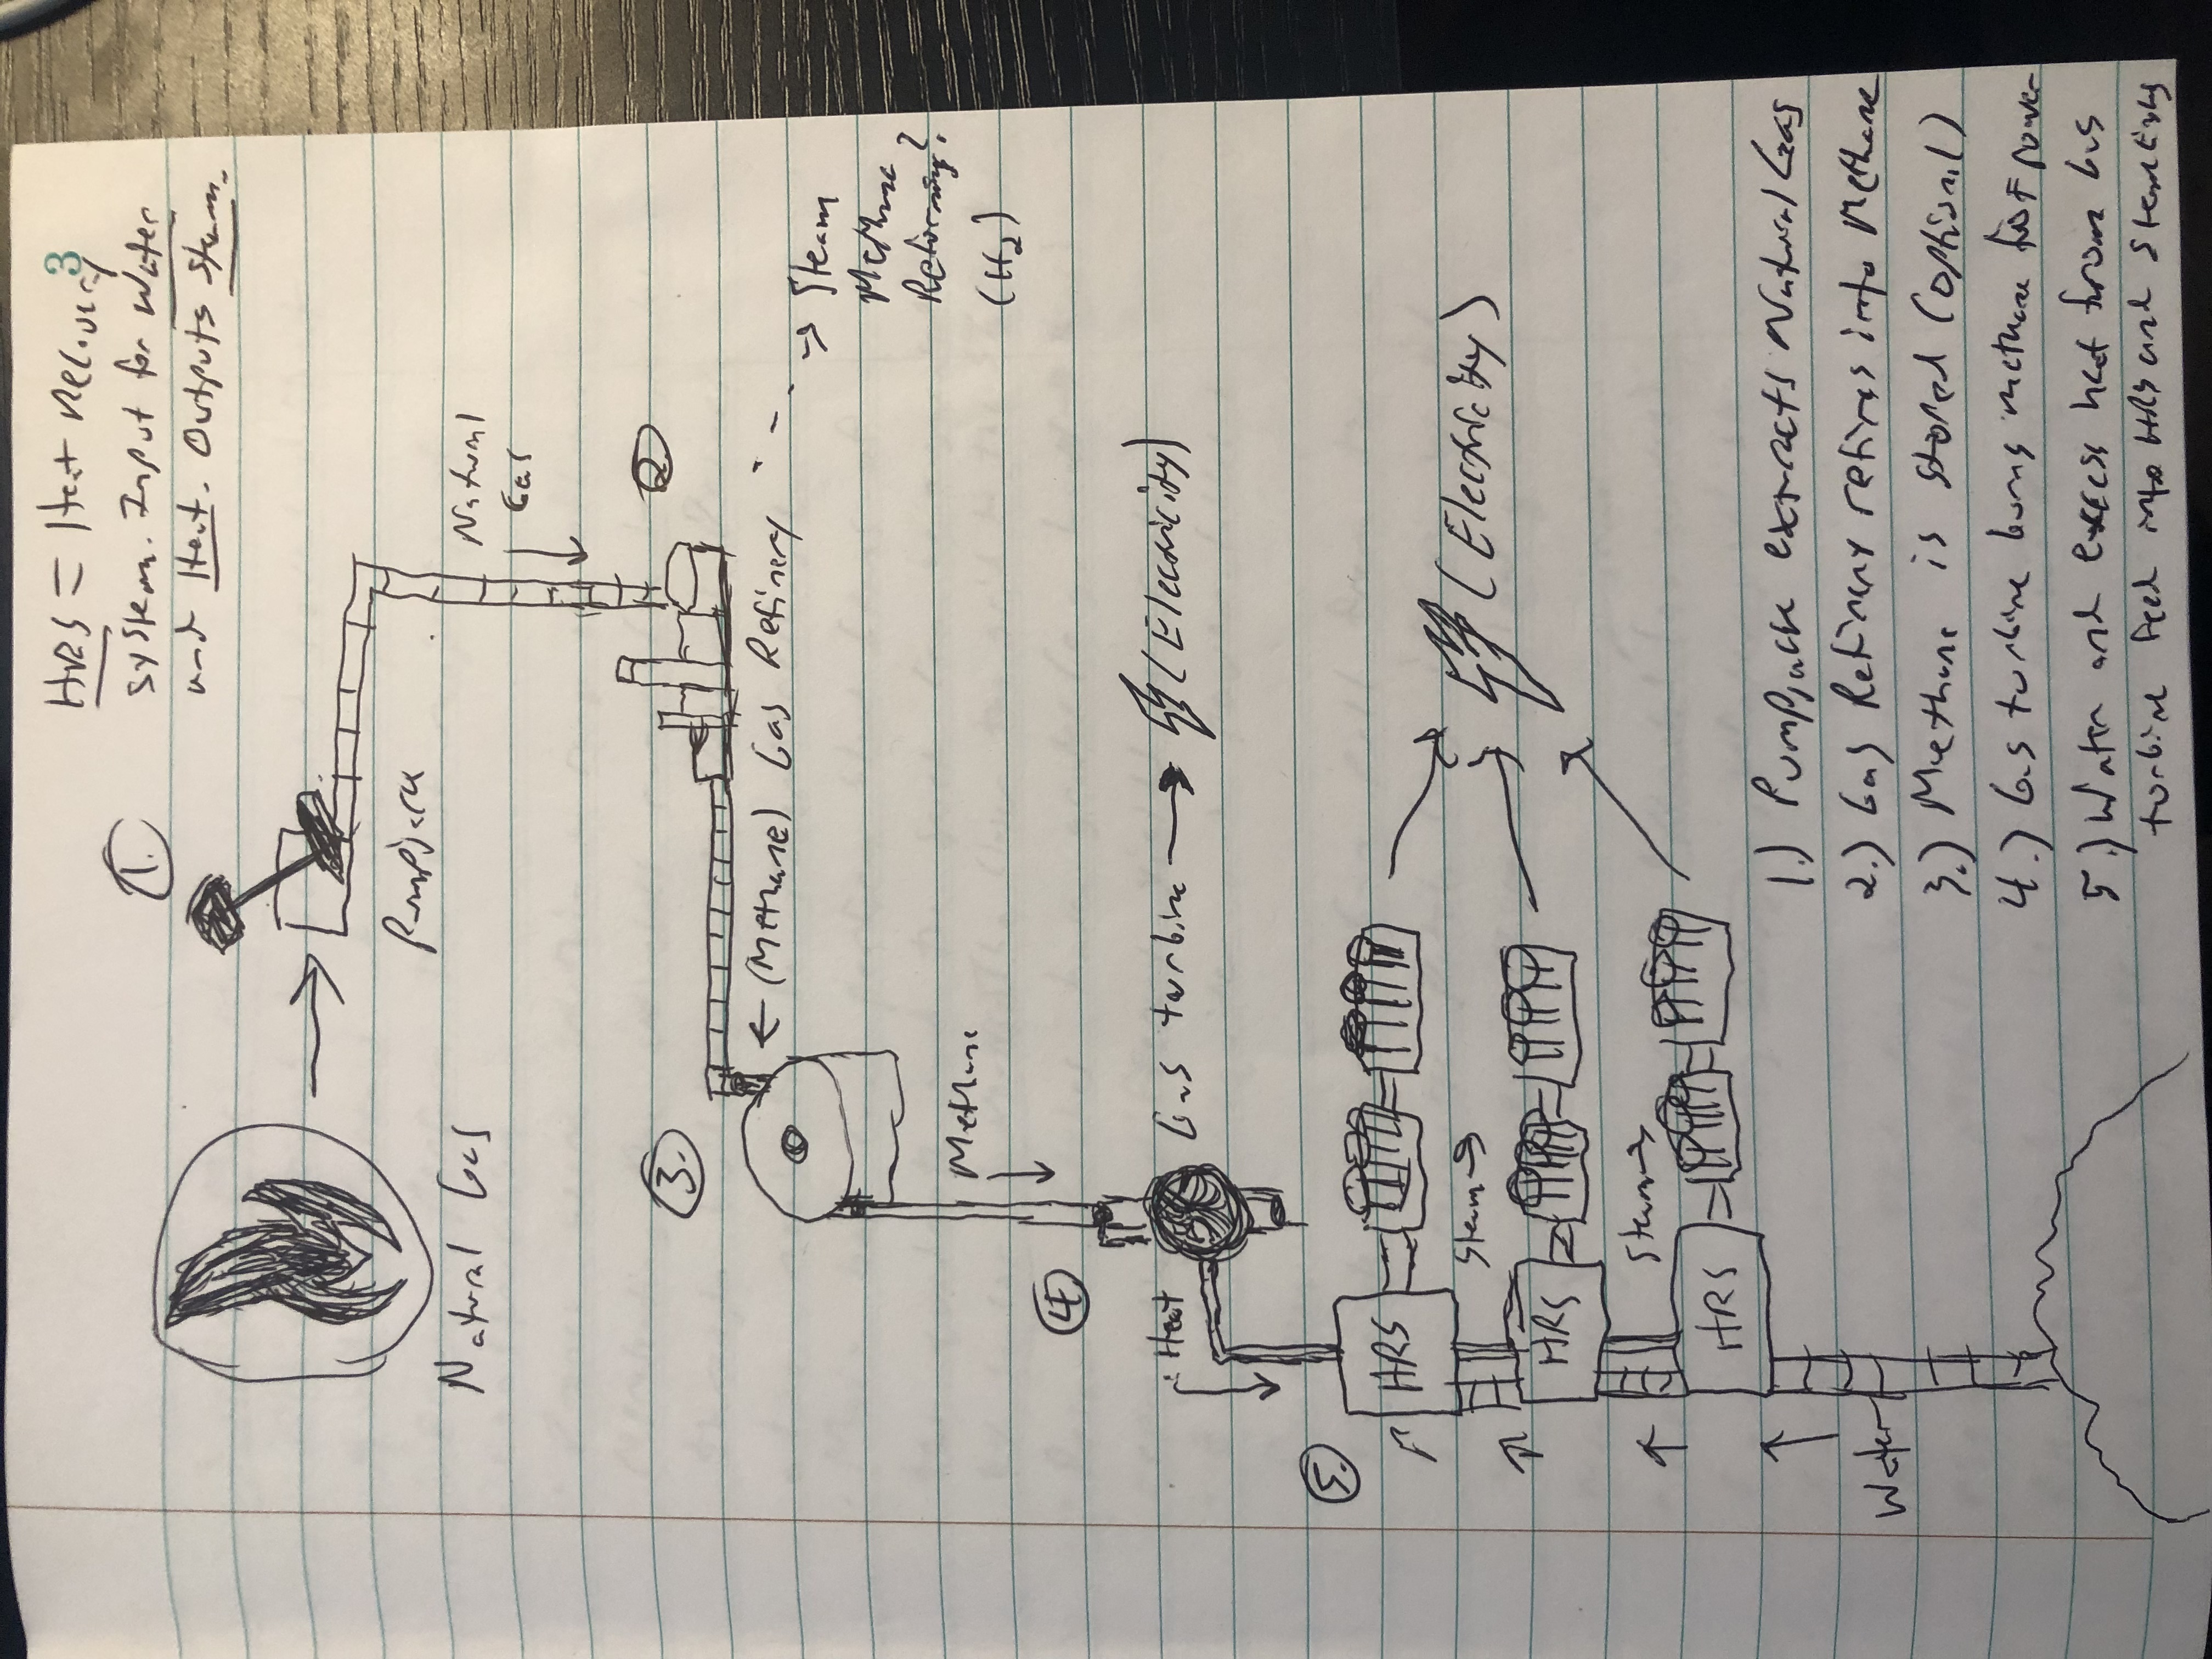 3
HRS = Heat Recovery
system. Input for water
and Heat. Outputs steam.
1.
Natural Gas
Pumpjack
Natural
Gas
2.
3.
← (Methane) Gas Refinery
→ Steam
Methane
Reforming?
(H2)
Methane
4.
Gas turbine → (Electricity)
Heat
5.
HRS
Steam→
HRS
(Electricity)
Steam→
HRS
Water
1.) Pumpjack extracts Natural Gas
2.) Gas Refinery refines into Methane
3.) Methane is stored (optional)
4.) Gas turbine burns methane for power
5.) Water and excess heat from Gas
turbine feed into HRS and steam